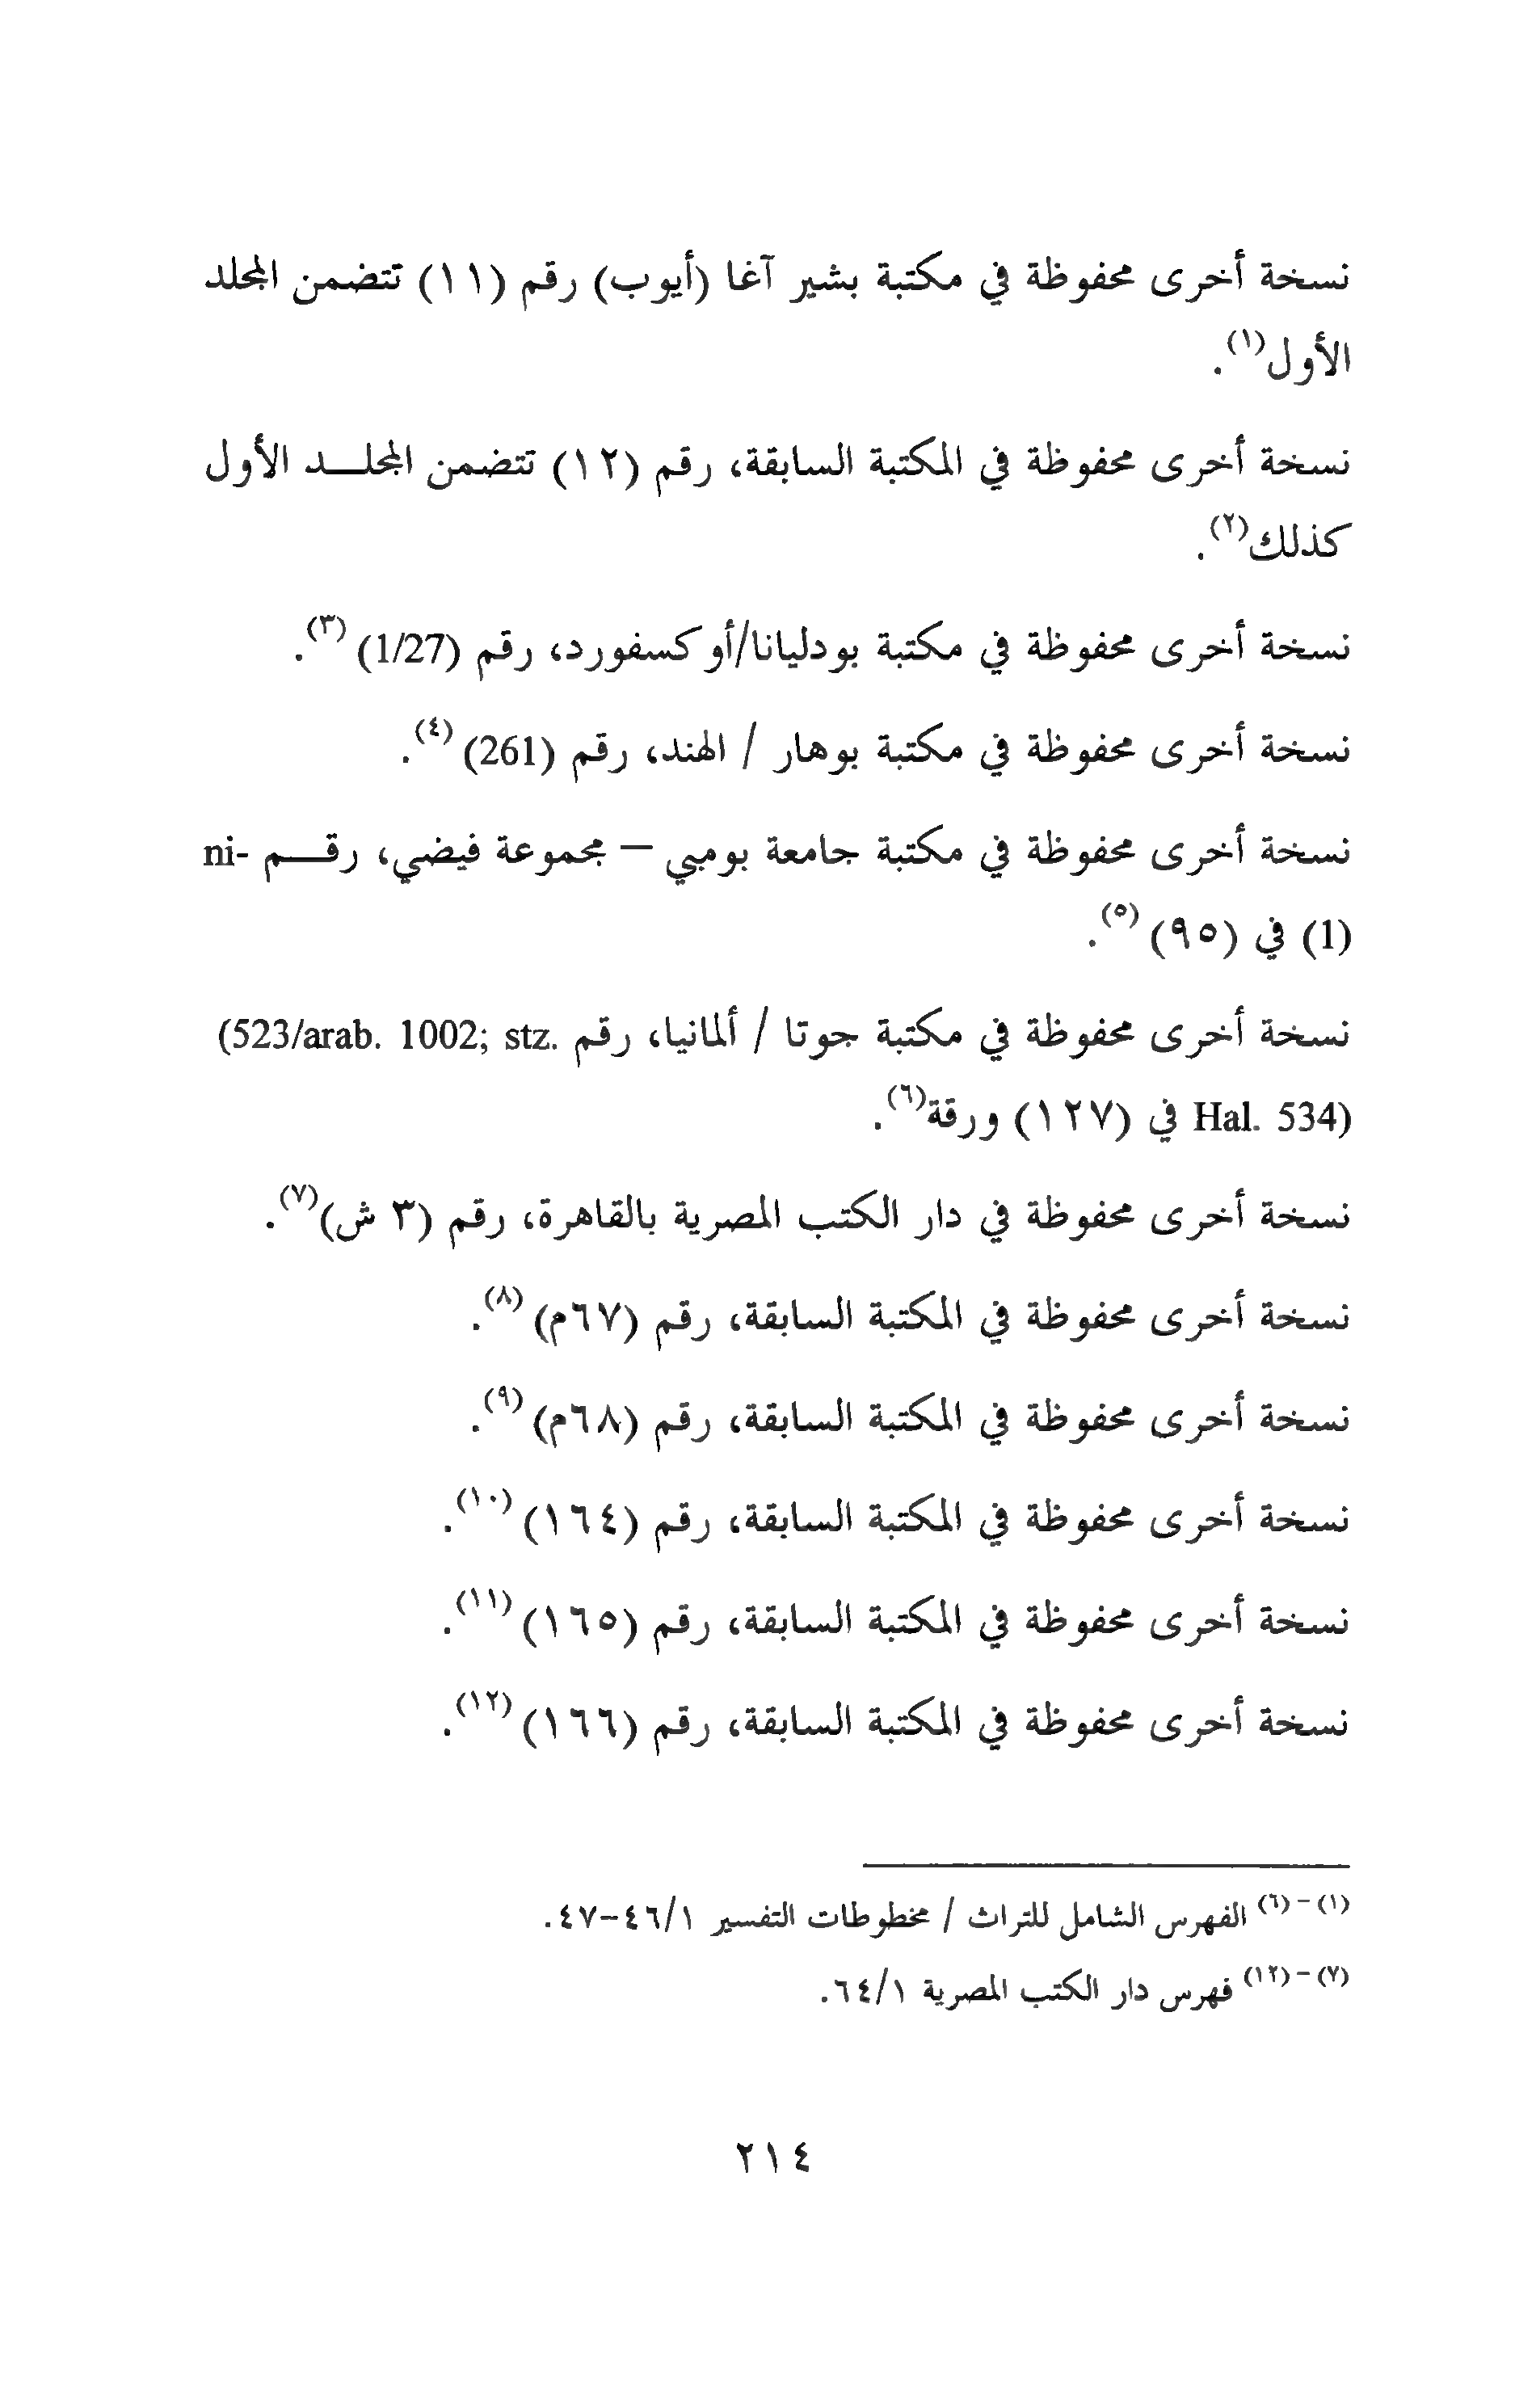 نسخة أخرى محفوظة في مكتبة بشير آغا (أيوب) رقم (١١) تتضمن المجلد
الأول(١).
نسخة أخرى محفوظة في المكتبة السابقة، رقم (١٢) تتضمن المجلــد الأول
كذلك(٢).
نسخة أخرى محفوظة في مكتبة بودليانا/أوكسفورد، رقم (1/27) (٣).
نسخة أخرى محفوظة في مكتبة بوهار / الهند، رقم (261) (٤).
نسخة أخرى محفوظة في مكتبة جامعة بومبي – مجموعة فيضي، رقــم ni-
(1) في (٩٥) (٥).
نسخة أخرى محفوظة في مكتبة جوتا / ألمانيا، رقم (523/arab. 1002; stz.
Hal. 534) في (١٢٧) ورقة(٦).
نسخة أخرى محفوظة في دار الكتب المصرية بالقاهرة، رقم (٣ ش)(٧).
نسخة أخرى محفوظة في المكتبة السابقة، رقم (٦٧م) (٨).
نسخة أخرى محفوظة في المكتبة السابقة، رقم (٦٨م) (٩).
نسخة أخرى محفوظة في المكتبة السابقة، رقم (١٦٤) (١٠).
نسخة أخرى محفوظة في المكتبة السابقة، رقم (١٦٥) (١١).
نسخة أخرى محفوظة في المكتبة السابقة، رقم (١٦٦) (١٢).
(١) – (٦) الفهرس الشامل للتراث / مخطوطات التفسير ٤٦/١–٤٧.
(٧) – (١٢) فهرس دار الكتب المصرية ٦٤/١.
٢١٤